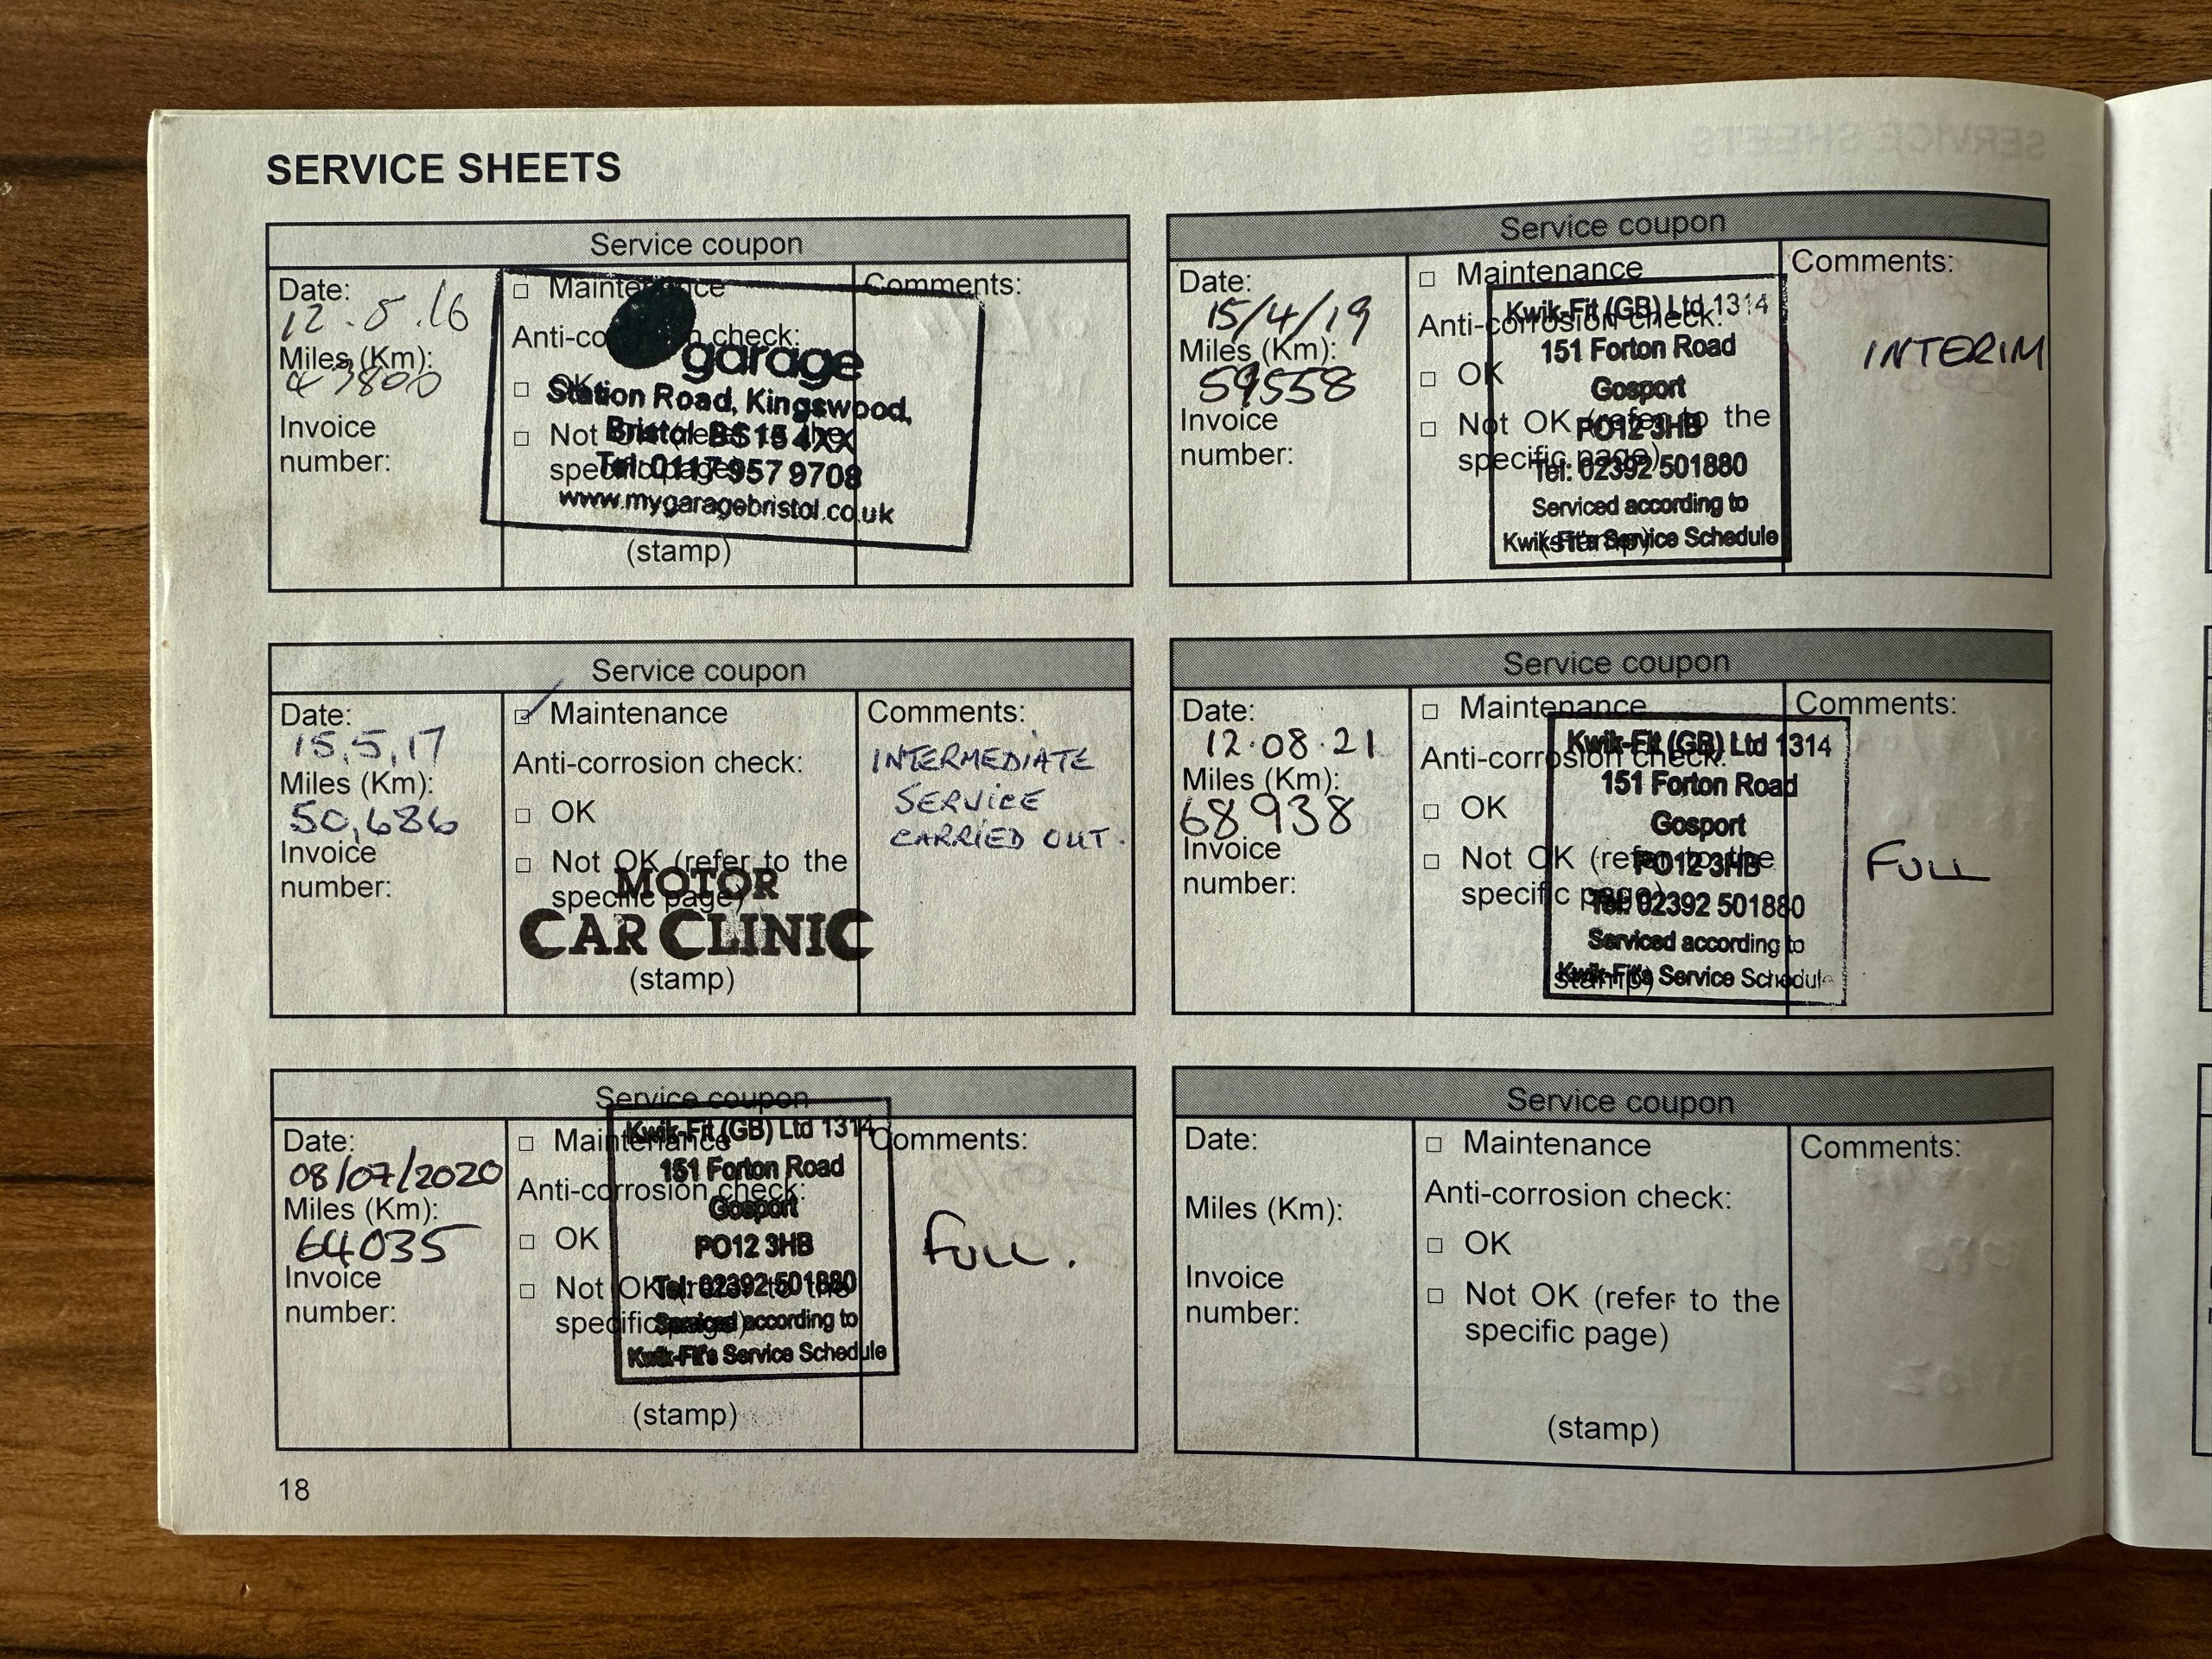 SERVICE SHEETS
Service coupon
Date:
12.5.16
Miles (Km):
43800
Invoice
number:
Maintenance
Anti-corrosion check:
OK
Not OK (refer to the
specific page)
(stamp)
Comments:
garage
Station Road, Kingswood,
Bristol BS15 4XX
Tel: 0117 957 9708
www.mygaragebristol.co.uk
Service coupon
Date:
15,5,17
Miles (Km):
50,686
Invoice
number:
Maintenance
Anti-corrosion check:
OK
Not OK (refer to the
specific page)
MOTOR
CAR CLINIC
(stamp)
Comments:
INTERMEDIATE
SERVICE
CARRIED OUT.
Service coupon
Date:
08/07/2020
Miles (Km):
64035
Invoice
number:
Maintenance
Anti-corrosion check:
OK
Not OK (refer to the
specific page)
(stamp)
Kwik-Fit (GB) Ltd 1314
151 Forton Road
Gosport
PO12 3HB
Tel: 02392 501880
Serviced according to
Kwik-Fit's Service Schedule
Comments:
FULL.
18
Service coupon
Date:
15/4/19
Miles (Km):
59558
Invoice
number:
Maintenance
Anti-corrosion check:
OK
Not OK (refer to the
specific page)
(stamp)
Kwik-Fit (GB) Ltd 1314
151 Forton Road
Gosport
PO12 3HB
Tel: 02392 501880
Serviced according to
Kwik-Fit's Service Schedule
Comments:
INTERIM
Service coupon
Date:
12.08.21
Miles (Km):
68938
Invoice
number:
Maintenance
Anti-corrosion check:
OK
Not OK (refer to the
specific page)
(stamp)
Kwik-Fit (GB) Ltd 1314
151 Forton Road
Gosport
PO12 3HB
Tel: 02392 501880
Serviced according to
Kwik-Fit's Service Schedule
Comments:
FULL
Service coupon
Date:
Miles (Km):
Invoice
number:
Maintenance
Anti-corrosion check:
OK
Not OK (refer to the
specific page)
(stamp)
Comments: